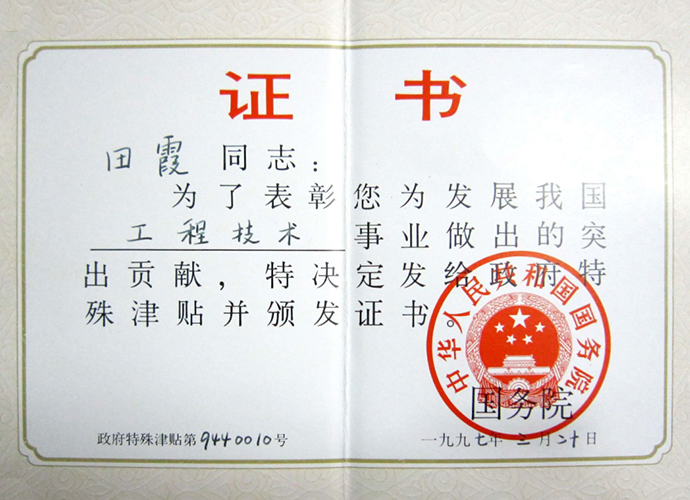 证书
田霞 同志：
为了表彰您为发展我国
工程技术事业做出的突
出贡献，特决定发给政府特
殊津贴并颁发证书。
中华人民政和国国务院
国务院
政府特殊津贴第9440010号
一九九七年三月二十日